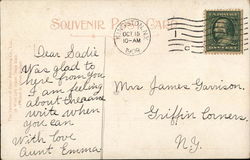 SOUVENIR POST CARD
KINGSTON, N.Y.
OCT 15
10-AM
1909
Dear Sadie
Was glad to
here from you
I am feeling
about the same
write when
you can
With love
Aunt Emma
Mrs James Garrison,
Griffin Corners,
N.Y.